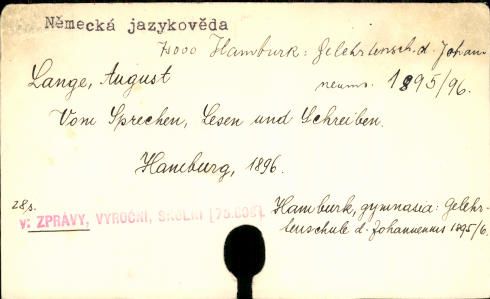 Německá jazykověda
v Hamburk: Gelehrtensch. d. Johan-
neums. 1895/96.
Lange, August
Vom Sprechen, Lesen und Schreiben.
Hamburg, 1896.
28 s.
v: ZPRÁVY, VÝROČNÍ, ŠKOLNÍ [75.000].
Hamburk, gymnasia: Gelehr-
tenschule d. Johanneums 1895/6.